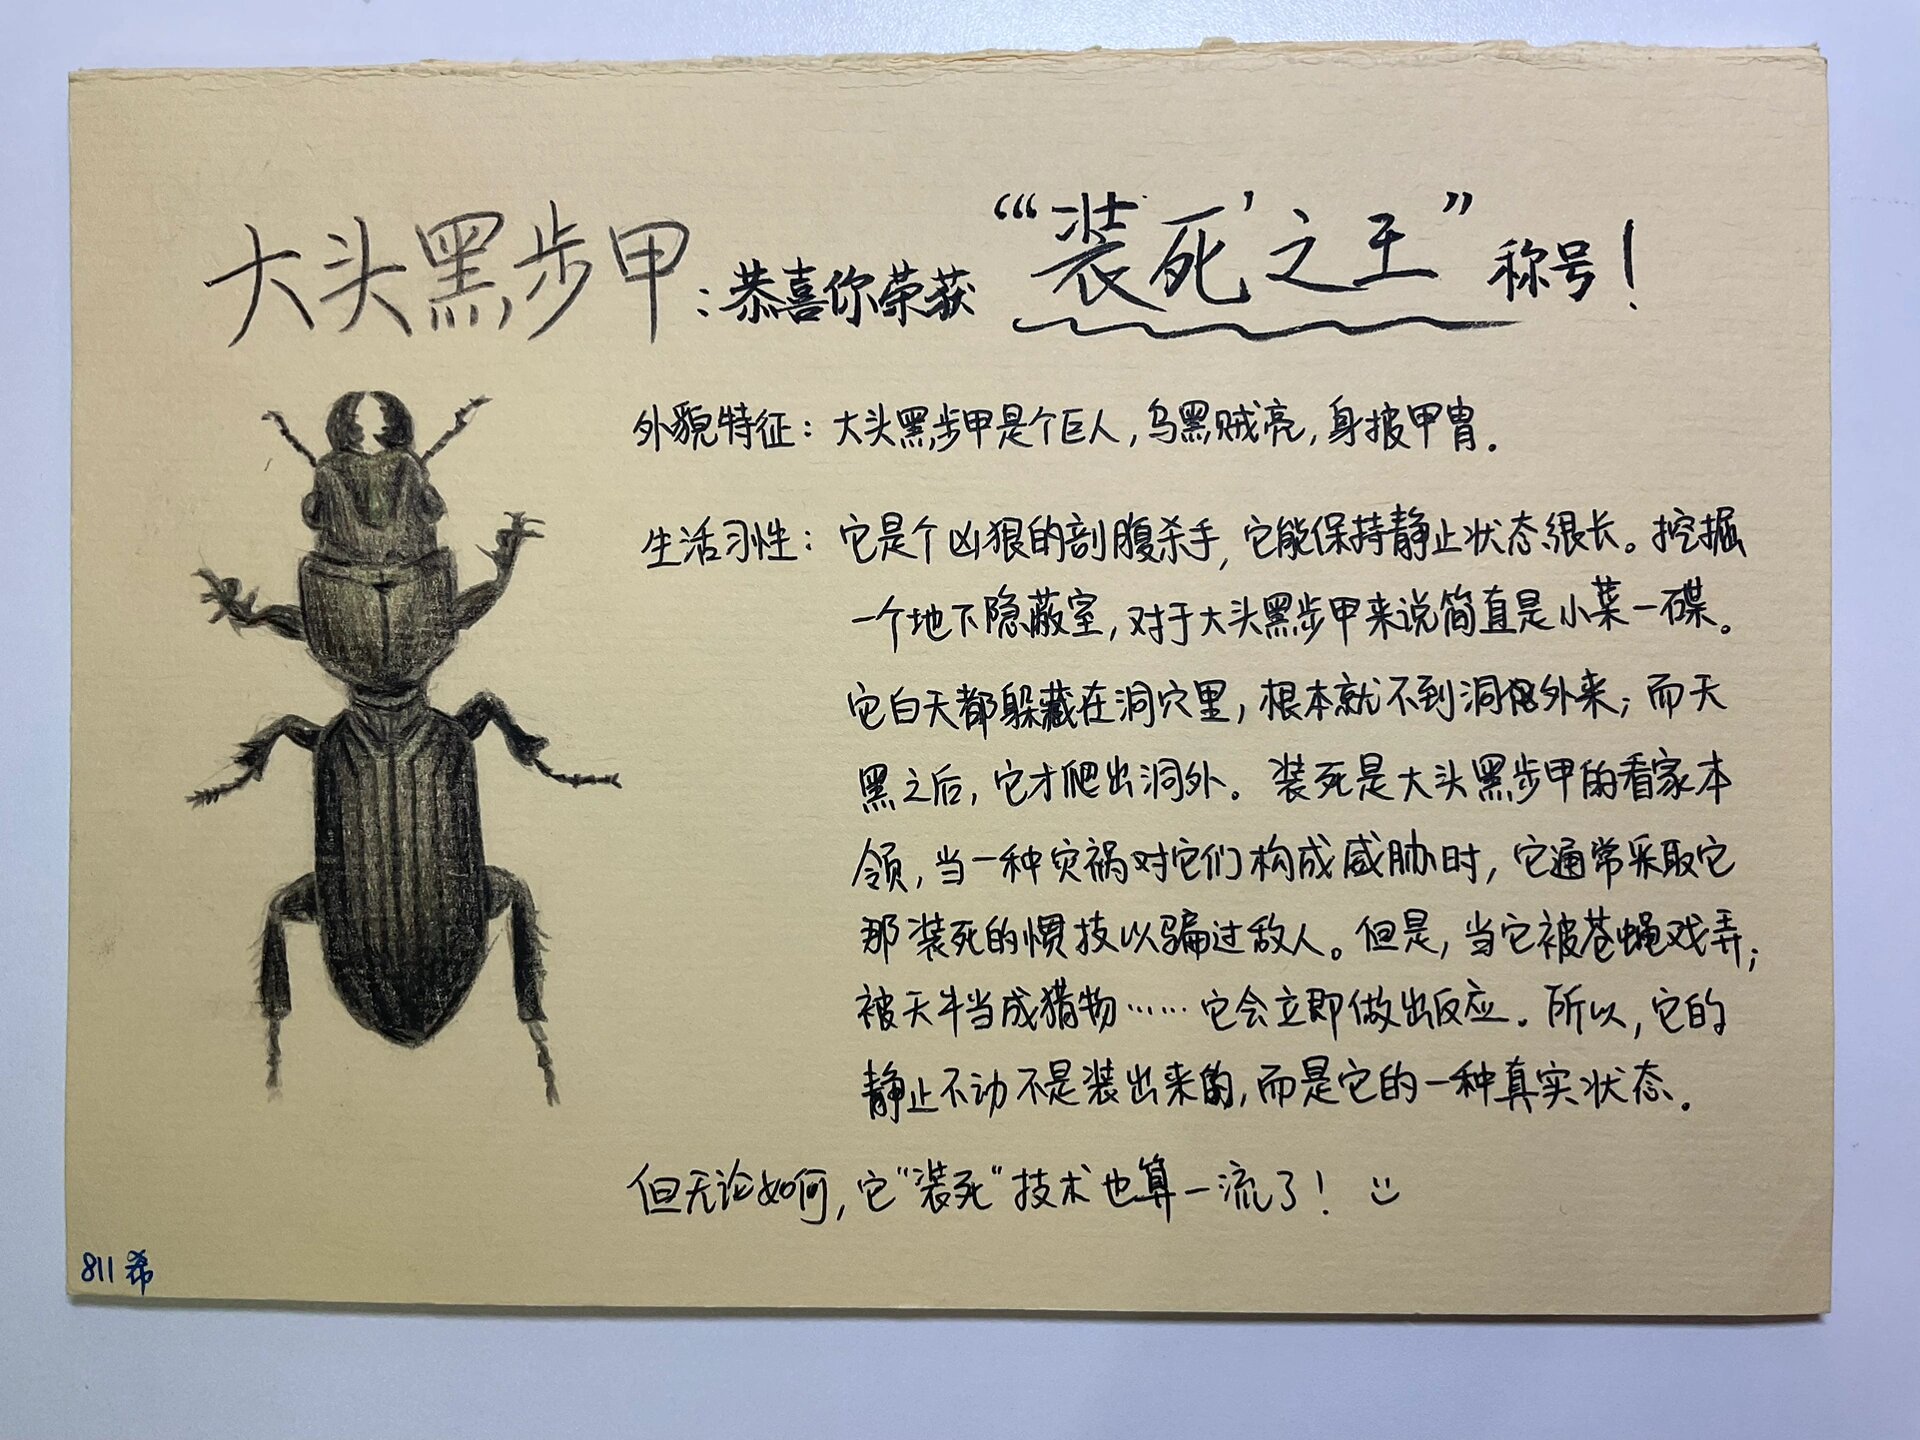 大头黑步甲：恭喜你荣获“‘装死’之王”称号！
外貌特征：大头黑步甲是个巨人，乌黑贼亮，身披甲胄.
生活习性：它是个凶狠的剖腹杀手，它能保持静止状态很长。挖掘
一个地下隐蔽室，对于大头黑步甲来说简直是小菜一碟。
它白天都躲藏在洞穴里，根本就不到洞外来；而天
黑之后，它才爬出洞外。装死是大头黑步甲的看家本
领，当一种灾祸对它们构成威胁时，它通常采取它
那装死的惯技以骗过敌人。但是，当它被苍蝇戏弄；
被天牛当成猎物……它会立即做出反应。所以，它的
静止不动不是装出来的，而是它的一种真实状态.
但无论如何，它“装死“技术也算一流了！
811 希